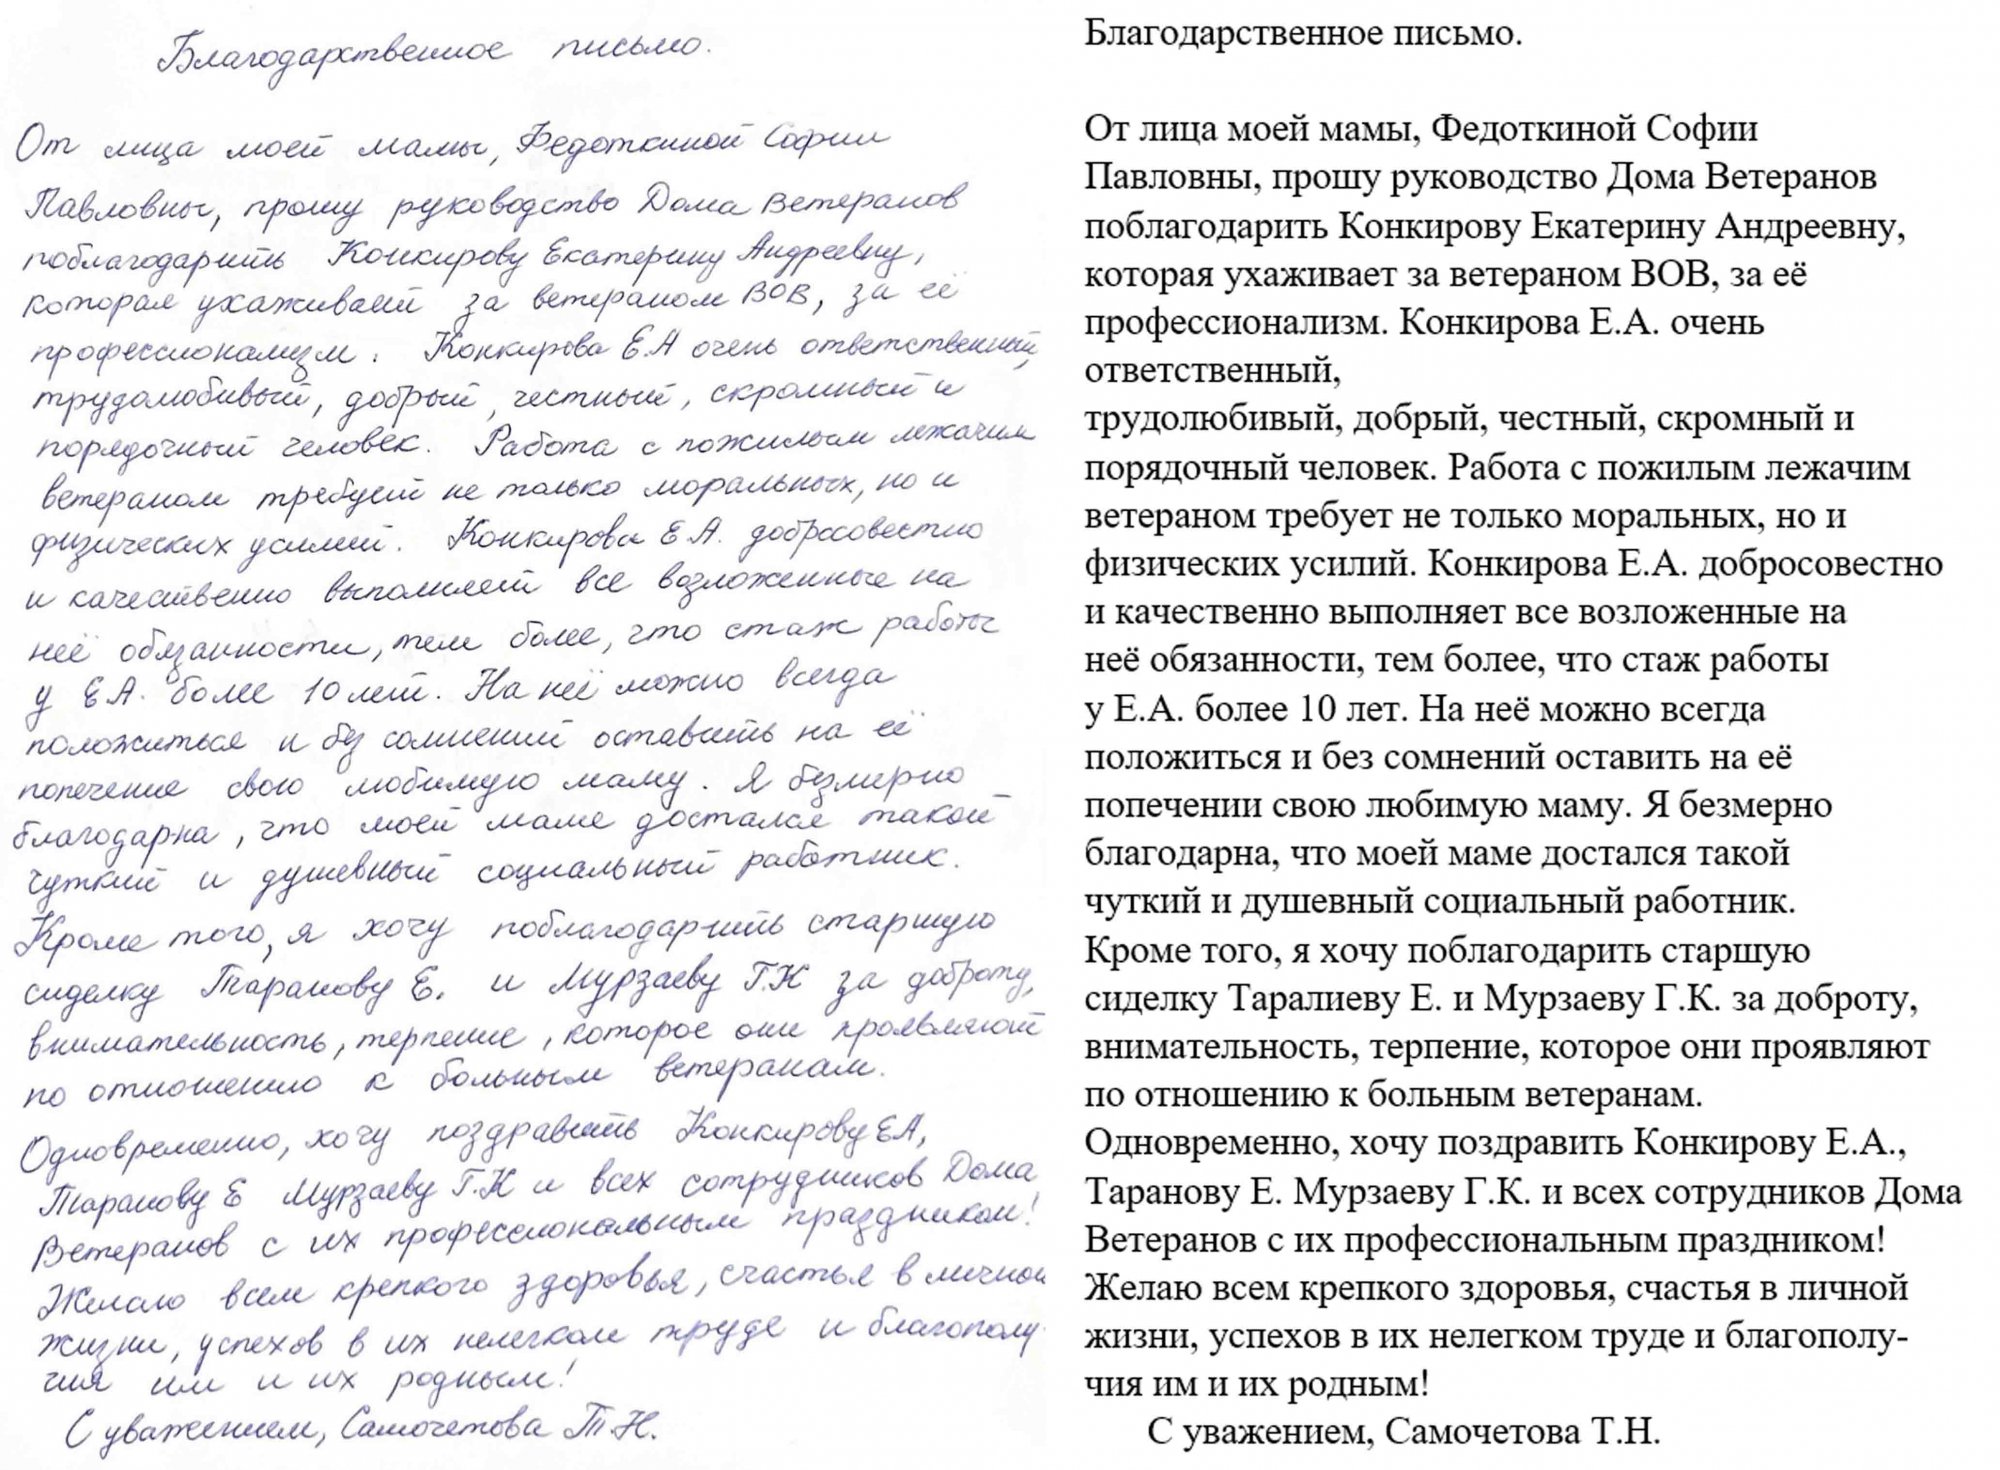 Благодарственное письмо.
От лица моей мамы, Федоткиной Софии
Павловны, прошу руководство Дома Ветеранов
поблагодарить Конкирову Екатерину Андреевну,
которая ухаживает за ветераном ВОВ, за её
профессионализм. Конкирова Е.А очень ответственный,
трудолюбивый, добрый, честный, скромный и
порядочный человек. Работа с пожилым лежачим
ветераном требует не только моральных, но и
физических усилий. Конкирова Е.А. добросовестно
и качественно выполняет все возложенные на
неё обязанности, тем более, что стаж работы
у Е.А. более 10 лет. На неё можно всегда
положиться и без сомнений оставить на её
попечение свою любимую маму. Я безмерно
благодарна, что моей маме достался такой
чуткий и душевный социальный работник.
Кроме того, я хочу поблагодарить старшую
сиделку Таранову Е. и Мурзаеву Г.К за доброту,
внимательность, терпение, которое они проявляют
по отношению к больным ветеранам.
Одновременно, хочу поздравить Конкирову ЕА,
Таранову Е Мурзаеву Г.К и всех сотрудников Дома
Ветеранов с их профессиональным праздником!
Желаю всем крепкого здоровья, счастья в личной
жизни, успехов в их нелегком труде и благополу-
чия им и их родным!
С уважением, Самочетова Т.Н.
Благодарственное письмо.
От лица моей мамы, Федоткиной Софии
Павловны, прошу руководство Дома Ветеранов
поблагодарить Конкирову Екатерину Андреевну,
которая ухаживает за ветераном ВОВ, за её
профессионализм. Конкирова Е.А. очень
ответственный,
трудолюбивый, добрый, честный, скромный и
порядочный человек. Работа с пожилым лежачим
ветераном требует не только моральных, но и
физических усилий. Конкирова Е.А. добросовестно
и качественно выполняет все возложенные на
неё обязанности, тем более, что стаж работы
у Е.А. более 10 лет. На неё можно всегда
положиться и без сомнений оставить на её
попечении свою любимую маму. Я безмерно
благодарна, что моей маме достался такой
чуткий и душевный социальный работник.
Кроме того, я хочу поблагодарить старшую
сиделку Таралиеву Е. и Мурзаеву Г.К. за доброту,
внимательность, терпение, которое они проявляют
по отношению к больным ветеранам.
Одновременно, хочу поздравить Конкирову Е.А.,
Таранову Е. Мурзаеву Г.К. и всех сотрудников Дома
Ветеранов с их профессиональным праздником!
Желаю всем крепкого здоровья, счастья в личной
жизни, успехов в их нелегком труде и благополу-
чия им и их родным!
С уважением, Самочетова Т.Н.